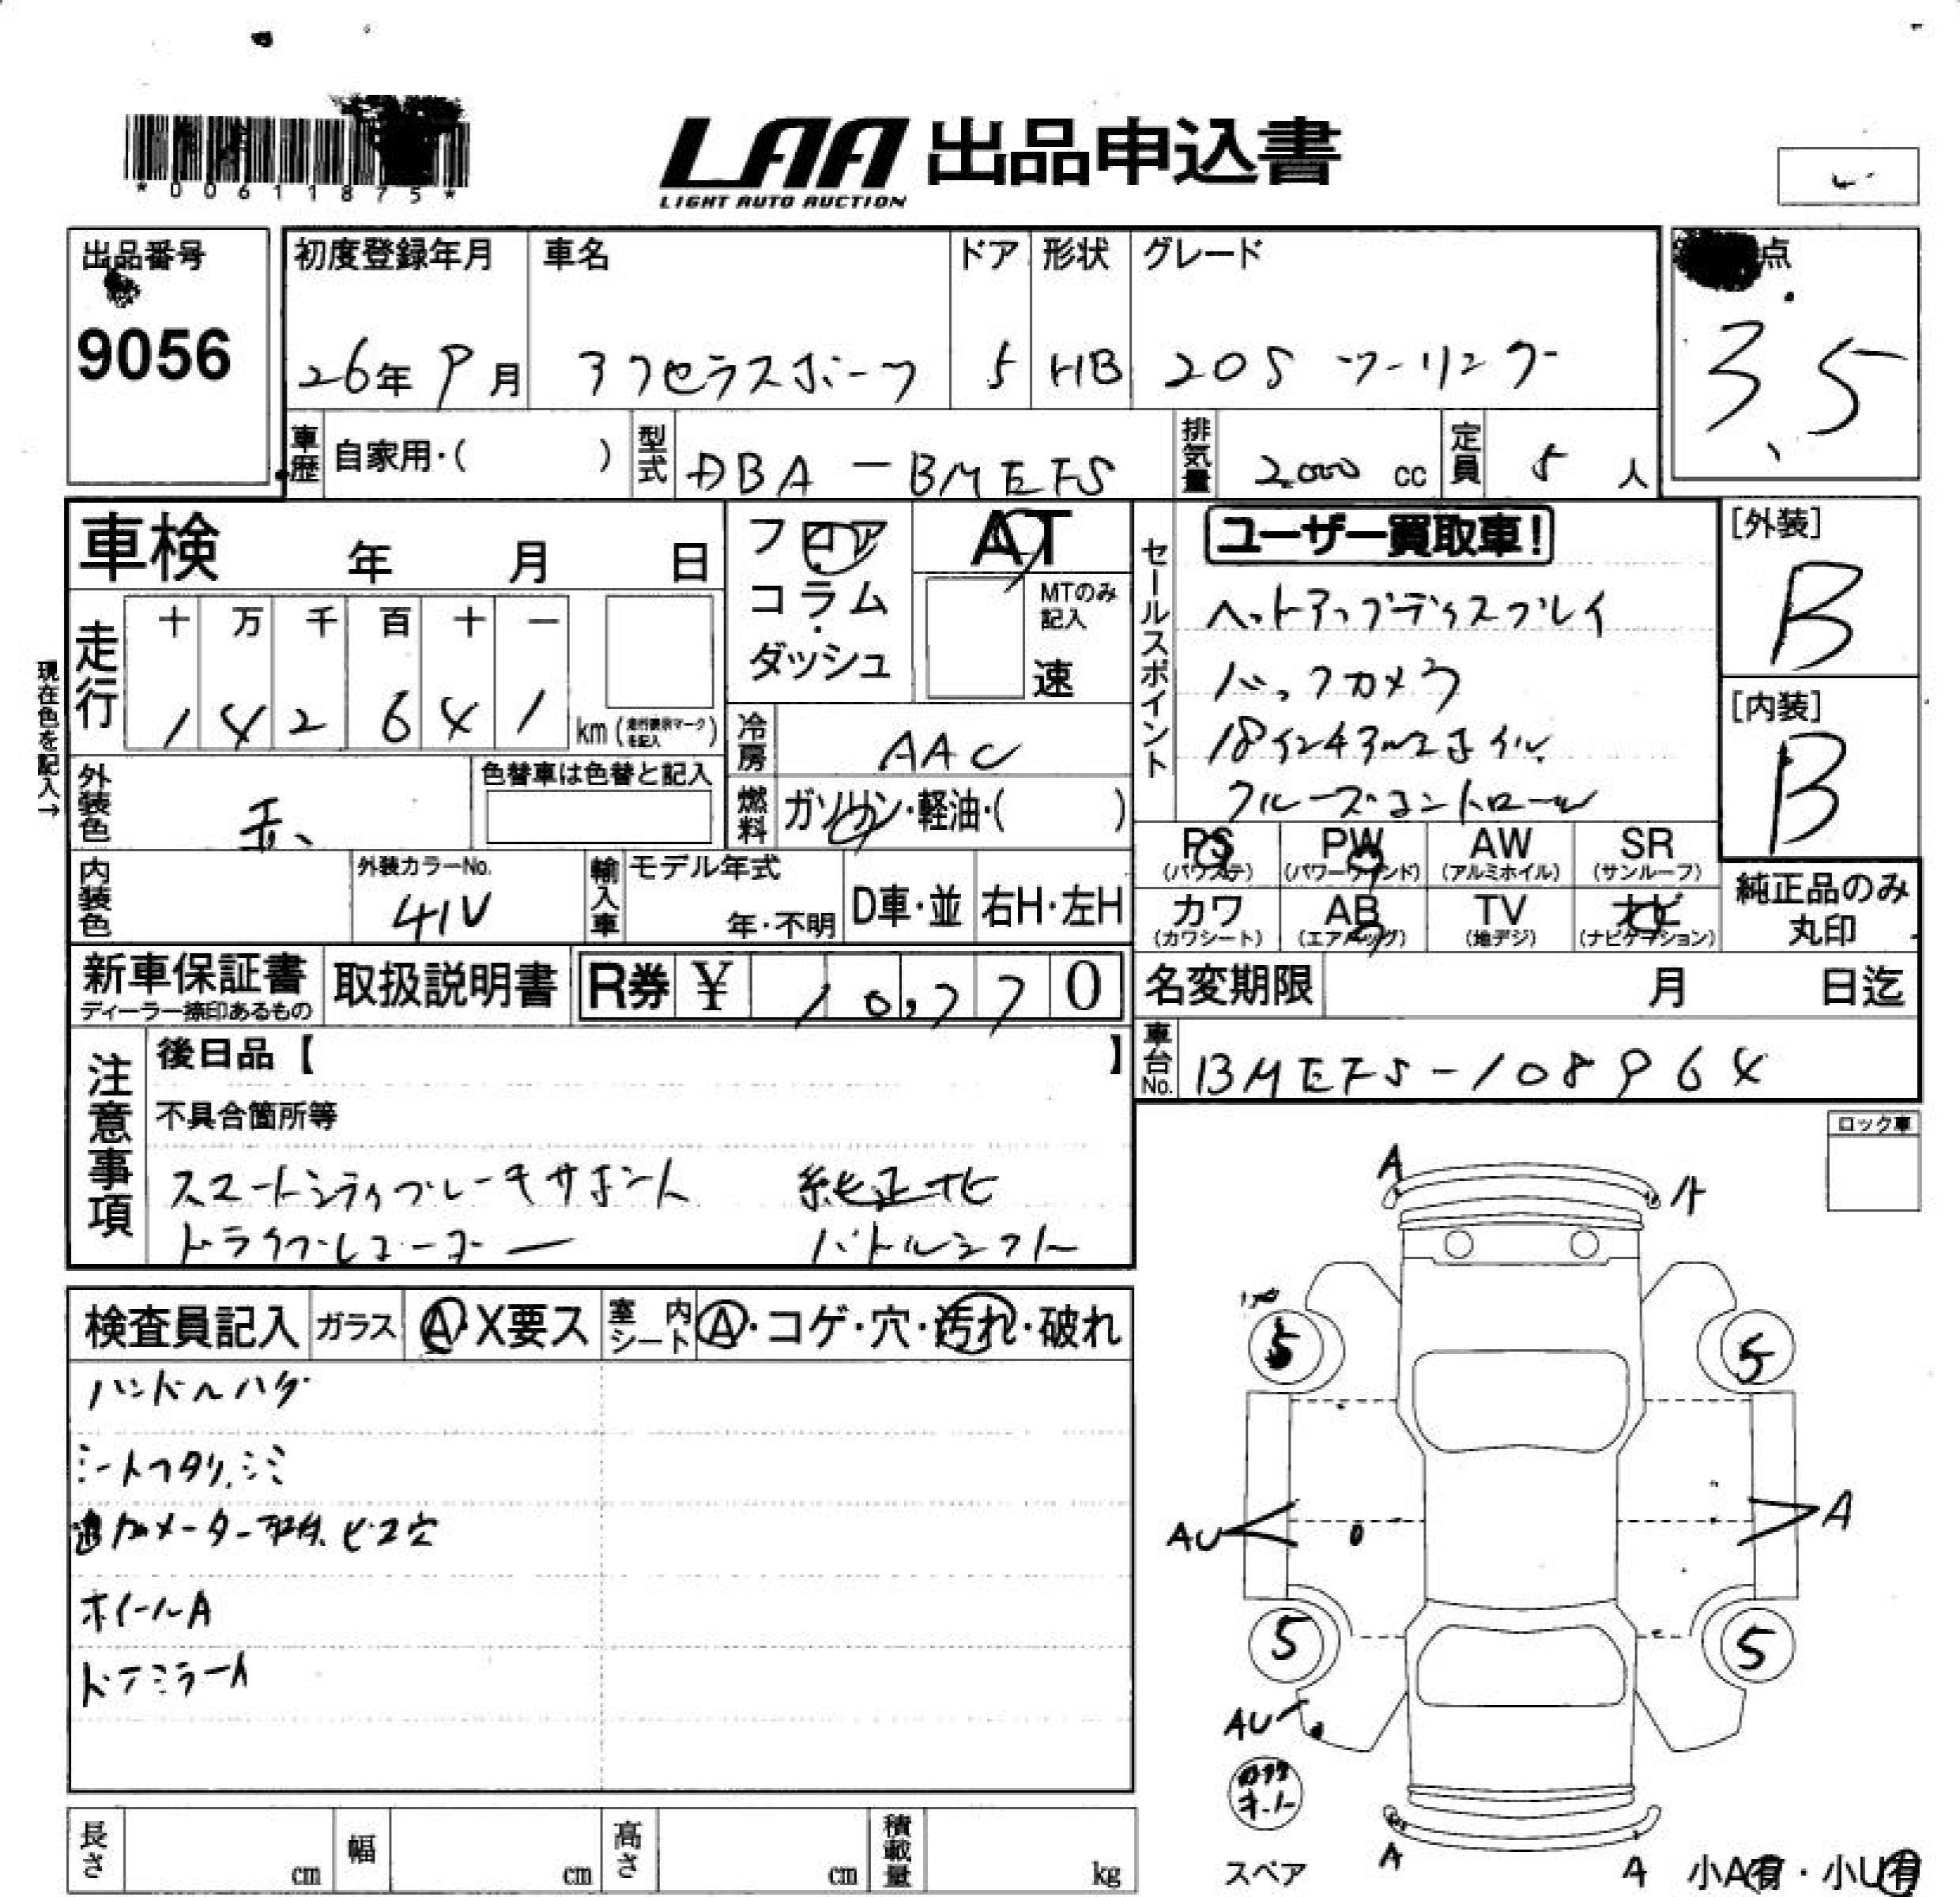 *00611875*
LAA 出品申込書
LIGHT AUTO AUCTION
出品番号
9056
初度登録年月
26年 9月
車名
アクセラスポーツ
ドア
5
形状
HB
グレード
20S ツーリング
点
3.5
車歴 自家用・( )
型式 DBA-BMEFS
排気量 2000 cc
定員 5 人
車検 年 月 日
フロア
コラム
・
ダッシュ
AT
MTのみ
記入
速
セールスポイント
ユーザー買取車!
ヘットアップディスプレイ
バックカメラ
18インチアルミホイル
クルーズコントロール
[外装]
B
[内装]
B
現在色を記入→
走行
十 万 千 百 十 一
1 4 2 6 4 1 km (走行表示マークを記入)
冷房 AAC
燃料 ガソリン・軽油・( )
外装色 赤
色替車は色替と記入
内装色
外装カラーNo.
41V
輸入車
モデル年式
年・不明
D車・並
右H・左H
PS
(パワステ)
PW
(パワーウインド)
AW
(アルミホイル)
SR
(サンルーフ)
カワ
(カワシート)
AB
(エアバッグ)
TV
(地デジ)
ナビ
(ナビゲーション)
純正品のみ
丸印
新車保証書
ディーラー捺印あるもの
取扱説明書
R券 ¥ 10,770
名変期限 月 日迄
車台No. BMEFS-108964
注意事項
後日品【 】
不具合箇所等
スマートシティブレーキサポート 純正ナビ
ドライブレコーダー パドルシフト
ロック車
検査員記入
ガラス A・X要ス
室内シート A・コゲ・穴・汚れ・破れ
ハンドルハゲ
シートヘタリ、シミ
追加メーター ビス穴
ホイールA
ドアミラーA
A
A
5
5
AU
A
5
5
AU
スペア
A
A
小A有・小U有
長さ cm
幅 cm
高さ cm
積載量 kg